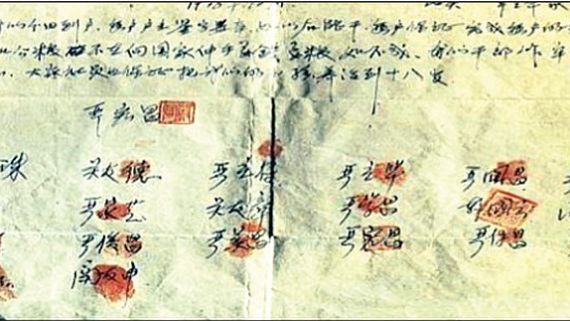 们分田到户,每户户主签字盖章,如以后能干,每户保证完成每户的
公粮,不在向国家伸手要钱要粮,如不成,我们干部作牢
大家社员也保证把我们的小孩养活到十八岁
严宏昌
珠 关友德 严立符 严立华 严国昌
严家芝 关友章 严学昌 韩国云
严俊昌 严美昌 严宏昌 严付昌
关友申